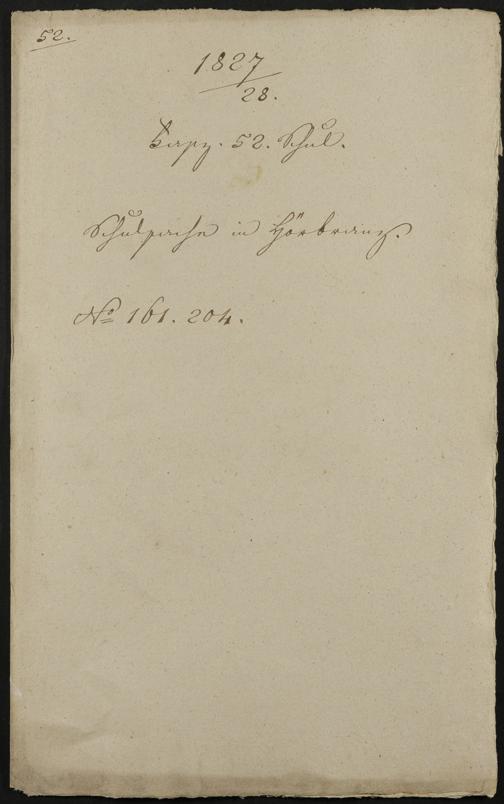 52.
1827
28.
Fasz. 52. Schul.
Schulsache in Hörbranz.
No 161. 204.